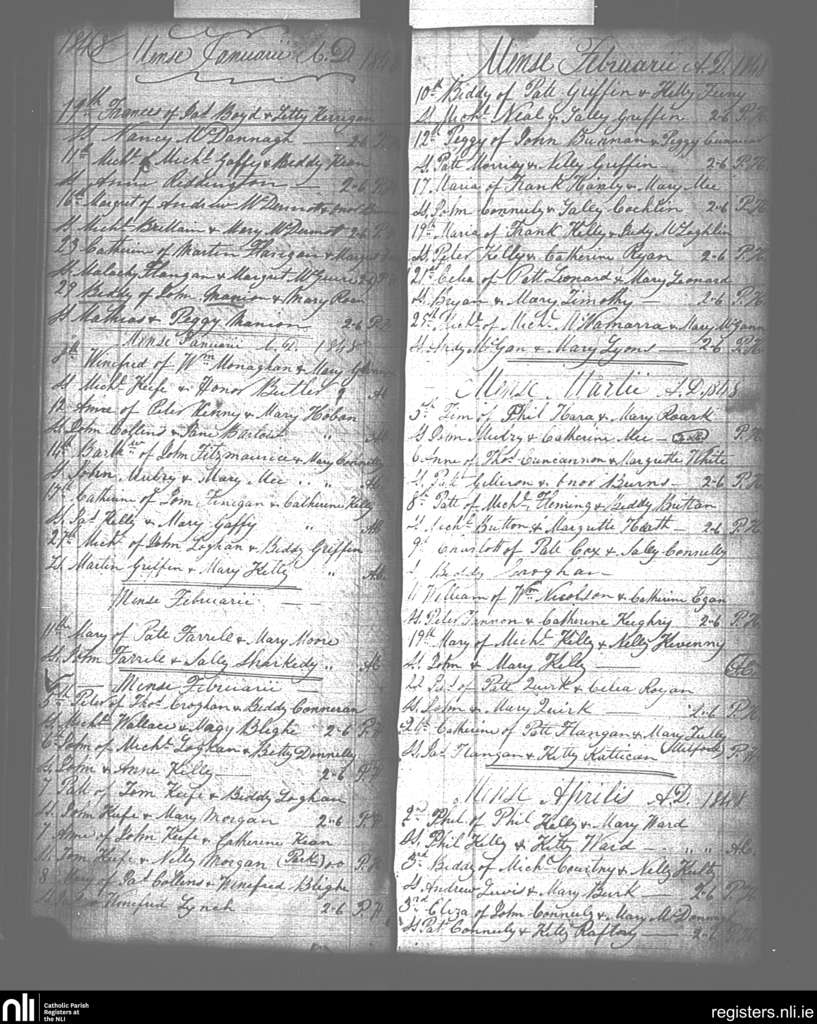 1848 Mense Januarii A.D. 1848
19th Frances of Pat Boyd & Letty Kerrigan
Ss Nancy McDannagh 2-6 P.H
11th Michl of Michl Gaffy & Biddy Kean
Ss Anne Riddington 2-6 P.H
16th Margret of Andrew McDermot & Onor
Ss Michl Bullam & Mary McDermot 2-6 P.H
23 Catherine of Martin Flanigan & Margret
Ss Malachy Flangan & Margret McGuire 2-6 P.H
29 Biddy of John Manion & Mary Roan
Ss Mathias & Peggy Manion 2-6 P.H
Mense Januarii A.D. 1848
8th Winefred of Wm Monaghan & Mary
Ss Michl Keife & Honor Butler " Ab
12 Anne of Peter Kenny & Mary Hoban
Ss John Collins & Jane Barlow " Ab
14th Bartw of John Fitzmaurice & Mary Connelly
Ss John Mulry & Mary Mee " " Ab
17th Catherine of Tom Finegan & Catherine Kelly
Ss Pat Kelly & Mary Gaffy " Ab
27th Michl of John Loghan & Biddy Griffin
Ss Martin Griffin & Mary Kelly " Ab
Mense Februarii
11th Mary of Patt Farrele & Mary Moore
Ss John Farrele & Sally Sharkedy " Ab
Mense Februarii
5th Peter of Thos Croghan & Biddy Conneran
Ss Michl Wallace & Nagy Blighe 2-6 P.H
6th John of Michl Loghan & Betty Donnelly
Ss John & Anne Kelly 2-6 P.H
7 Patt of Tom Keife & Biddy Loghan
Ss John Keife & Mary Morgan 2-6 P.H
7 Anne of John Keife & Catherine Kean
Ss Tom Keife & Nelly Morgan (Park) P.H
8 Mary of Pat Collins & Winefred Blighe
Winefred Lynch 2-6 P.H
Mense Februarii A.D. 1848
10th Biddy of Patt Griffin & Kelly Feeny
Ss Michl Neal & Salley Griffin 2-6 P.H
12th Peggy of John Bunnan & Peggy
Ss Patt Morrisy & Nelly Griffin 2-6 P.H
17 Maria of Frank Hanly & Mary Mee
Ss John Connuly & Salley Cocklin 2-6 P.H
19th Maria of Frank Kelly & Judy McLoghlin
Ss Peter Kelly & Catherine Ryan 2-6 P.H
21st Celia of Patt Leonard & Mary Leonard
Ss Bryan & Mary Timothy 2-6 P.H
25th Michl of Michl McNamarra & Mary McGann
Ss Andy McGan & Mary Lyons 2-6 P.H
Mense Martii A.D. 1848
5th Tim of Phil Hara & Mary Roark
Ss John Mulry & Catherine Mee P.H
6 Anne of Thos Cuncannon & Margrette White
Ss Patt Gilleron & Onor Burns 2-6 P.H
8th Patt of Michl Fleming & Biddy Button
Ss Michl Button & Margrette Harth 2-6 P.H
9th Charlott of Patt Cox & Sally Connelly
Biddy Croghan
11 William of Wm Nicolson & Catherine Egan
Ss Peter Finnon & Catherine Keighry 2-6 P.H
19th Mary of Michl Kelly & Nelly Kevenny
Ss John & Mary Kelly
22 Pat of Patt Quirk & Celia Rogan
Ss John & Mary Quirk 2-6 P.H
26th Catherine of Patt Flangan & Mary Kelly
Ss Pat Flangan & Kitty Katican (Milford) P.H
Mense Aprilis A.D. 1848
2nd Phil of Phil Kelly & Mary Ward
Ss Phil Kelly & Kitty Ward " " Ab
3rd Biddy of Michl Courtny & Nelly Kilty
Ss Andrew Lewis & Mary Burk 2-6 P.H
3rd Eliza of John Connuly & Mary McDonnogh
Ss Pat Connuly & Kitty Raftery 2-6 P.H
nli
Catholic Parish
Registers at
the NLI
registers.nli.ie